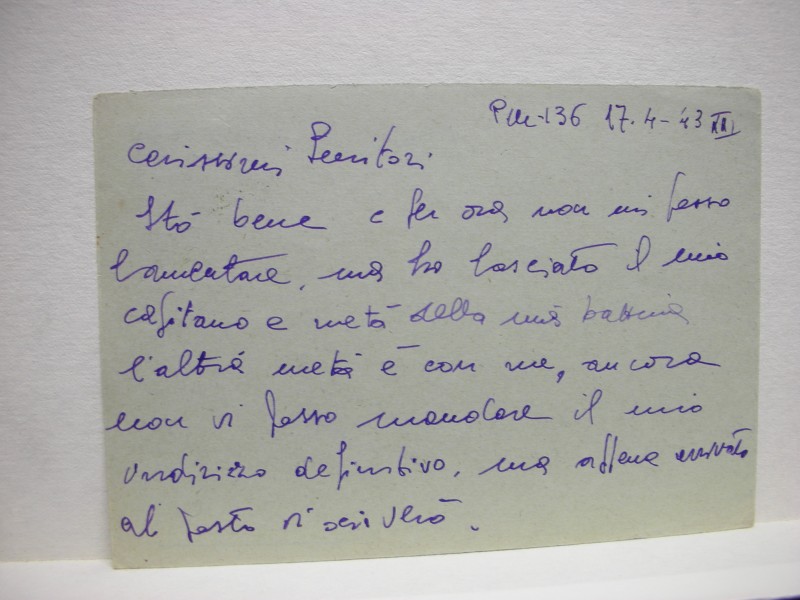 P.M-136 17.4-43 XXI
carissimi Genitori
Stò bene e per ora non mi posso
lamentare, ma ho lasciato il mio
capitano e metà della mia batteria
l'altrà metà è con me, ancora
non vi posso mandare il mio
indirizzo definitivo, ma appena arrivato
al posto vi scriverò.